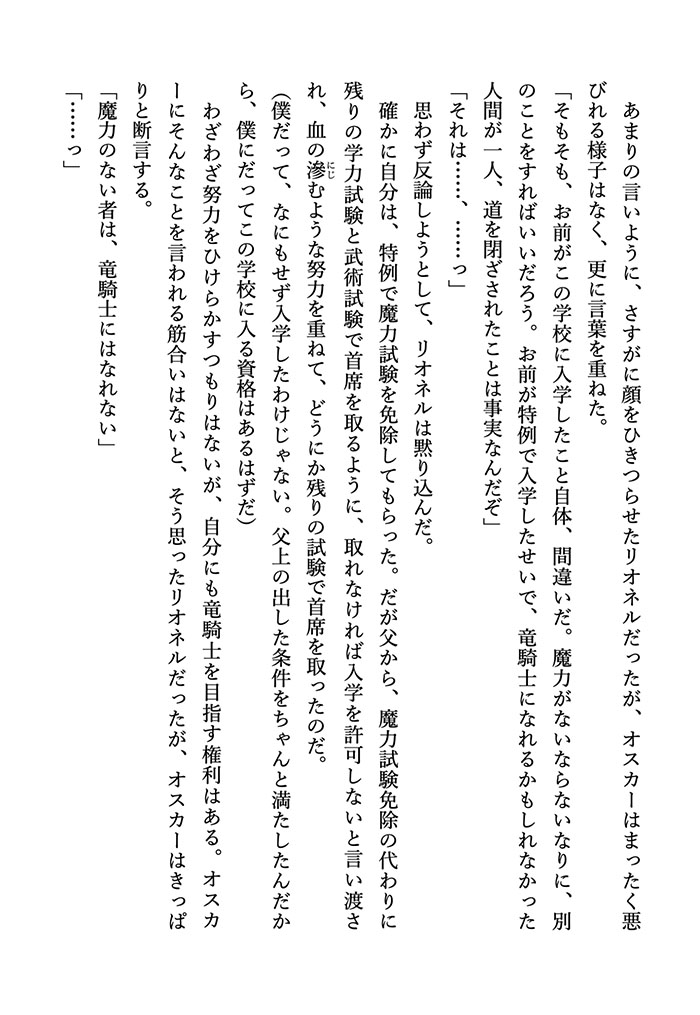 あまりの言いように、さすがに顔をひきつらせたリオネルだったが、オスカーはまったく悪
びれる様子はなく、更に言葉を重ねた。
「そもそも、お前がこの学校に入学したこと自体、間違いだ。魔力がないならないなりに、別
のことをすればいいだろう。お前が特例で入学したせいで、竜騎士になれるかもしれなかった
人間が一人、道を閉ざされたことは事実なんだぞ」
「それは……、……っ」
思わず反論しようとして、リオネルは黙り込んだ。
確かに自分は、特例で魔力試験を免除してもらった。だが父から、魔力試験免除の代わりに
残りの学力試験と武術試験で首席を取るように、取れなければ入学を許可しないと言い渡さ
れ、血の滲にじむような努力を重ねて、どうにか残りの試験で首席を取ったのだ。
（僕だって、なにもせず入学したわけじゃない。父上の出した条件をちゃんと満たしたんだか
ら、僕にだってこの学校に入る資格はあるはずだ）
わざわざ努力をひけらかすつもりはないが、自分にも竜騎士を目指す権利はある。オスカ
ーにそんなことを言われる筋合いはないと、そう思ったリオネルだったが、オスカーはきっぱ
りと断言する。
「魔力のない者は、竜騎士にはなれない」
「……っ」